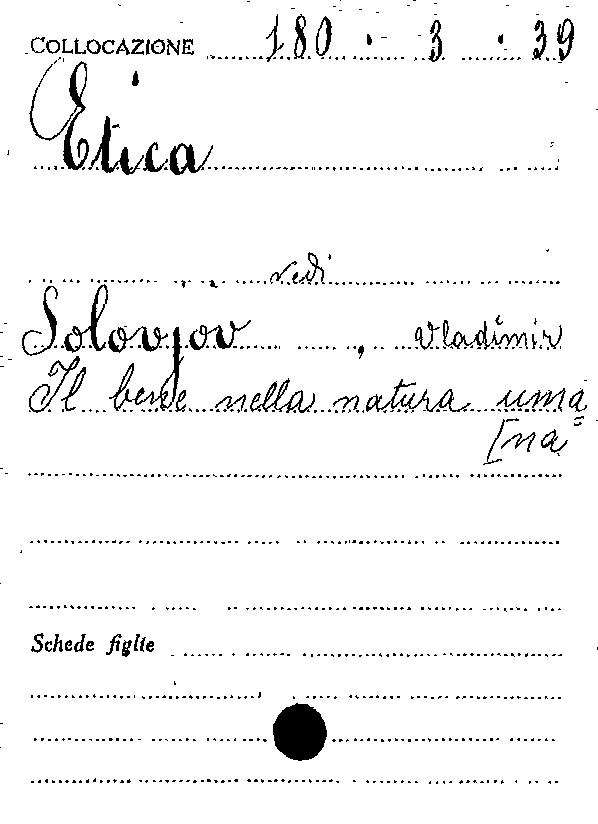 COLLOCAZIONE 180 · 3 · 39
Etica
vedi
Solovjov, Vladimir
Il bene nella natura uma=
[na
Schede figlie